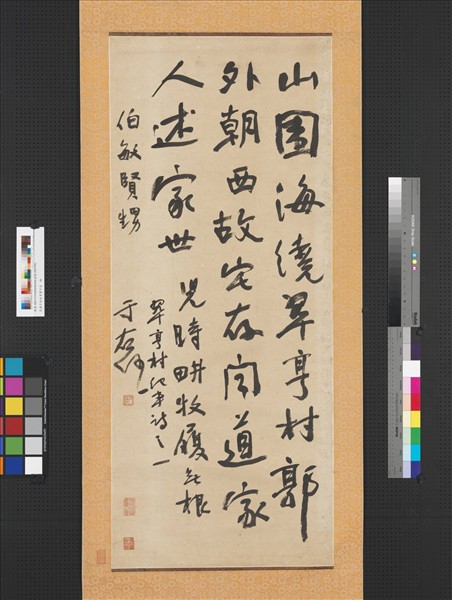 山圍海繞翠亨村郭
外朝西故宅存聞道家
人述家世
兒時畊牧履無根
翠亨村紀事詩之一
伯敏賢甥
于右任